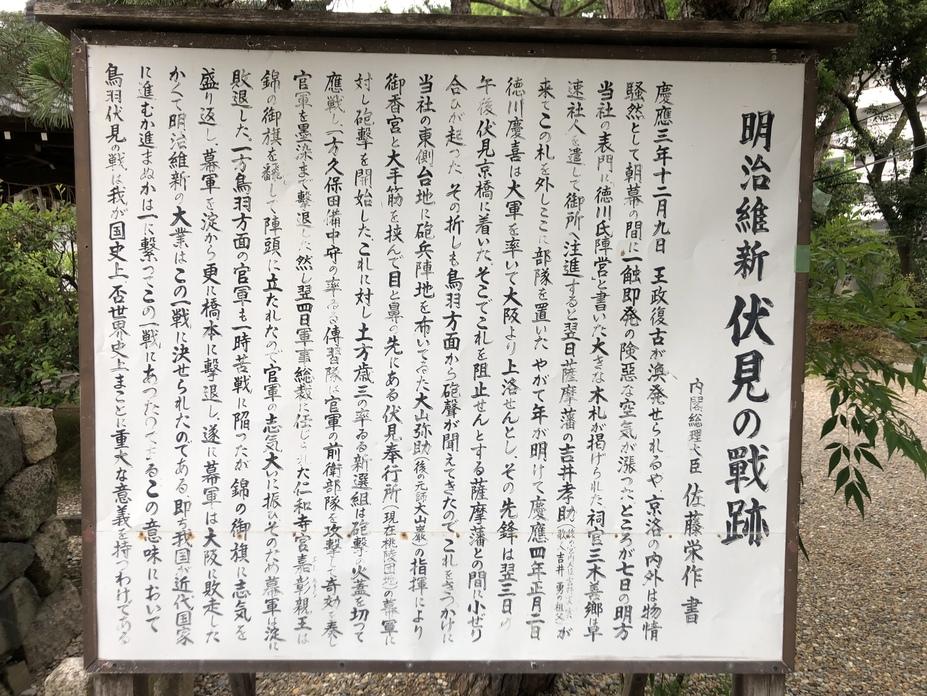 明治維新 伏見の戰跡
内閣総理大臣 佐藤栄作 書
慶應三年十二月九日 王政復古が渙発せられるや 京洛の内外は物情
騒然として朝幕の間に一触即発の険悪な空気が漲つた ところが七日の明方
当社の表門に徳川氏陣営と書いた大きな木札が掲げられた 祠官三木善郷は早
速社人を遣して御所に注進すると翌日薩摩藩の吉井孝助(歌人吉井勇の祖父)が
来てこの札を外しここに部隊を置いた やがて年が明けて慶應四年正月二日
徳川慶喜は大軍を率いて大阪より上洛せんとし、その先鋒は翌三日の
午後伏見京橋に着いた、そこでこれを阻止せんとする薩摩藩との間に小ぜり
合ひが起つた その折しも鳥羽方面から砲聲が聞えてきたのでこれをきつかけに
当社の東側台地に砲兵陣地を布いてゐた大山弥助(後の元帥大山巌)の指揮により
御香宮と大手筋を挟んで目と鼻の先にある伏見奉行所(現在桃陵団地)の幕軍に
対し砲撃を開始した、これに対し土方歳三の率ゐる新選組は砲撃の火蓋を切つて
應戦し、一方久保田備中守の率ゐる傳習隊は官軍の前衛部隊を攻撃して奇効を奏し
官軍を墨染まで撃退した、然し翌四日軍事総裁に任じられた仁和寺宮嘉彰親王は
錦の御旗を飜して陣頭に立たれたので官軍の志気大いに振ひそのため幕軍は淀に
敗退した、一方鳥羽方面の官軍も一時苦戦に陥つたが錦の御旗に志気を
盛り返し、幕軍を淀から更に橋本に撃退し、遂に幕軍は大阪に敗走した
かくて明治維新の大業はこの一戦に決せられたのである、即ち我国が近代国家
に進むか進まぬかは一に繋つてこの一戦にあつたのである この意味において
鳥羽伏見の戦は我が国史上 否世界史上まことに重大な意義を持つわけである